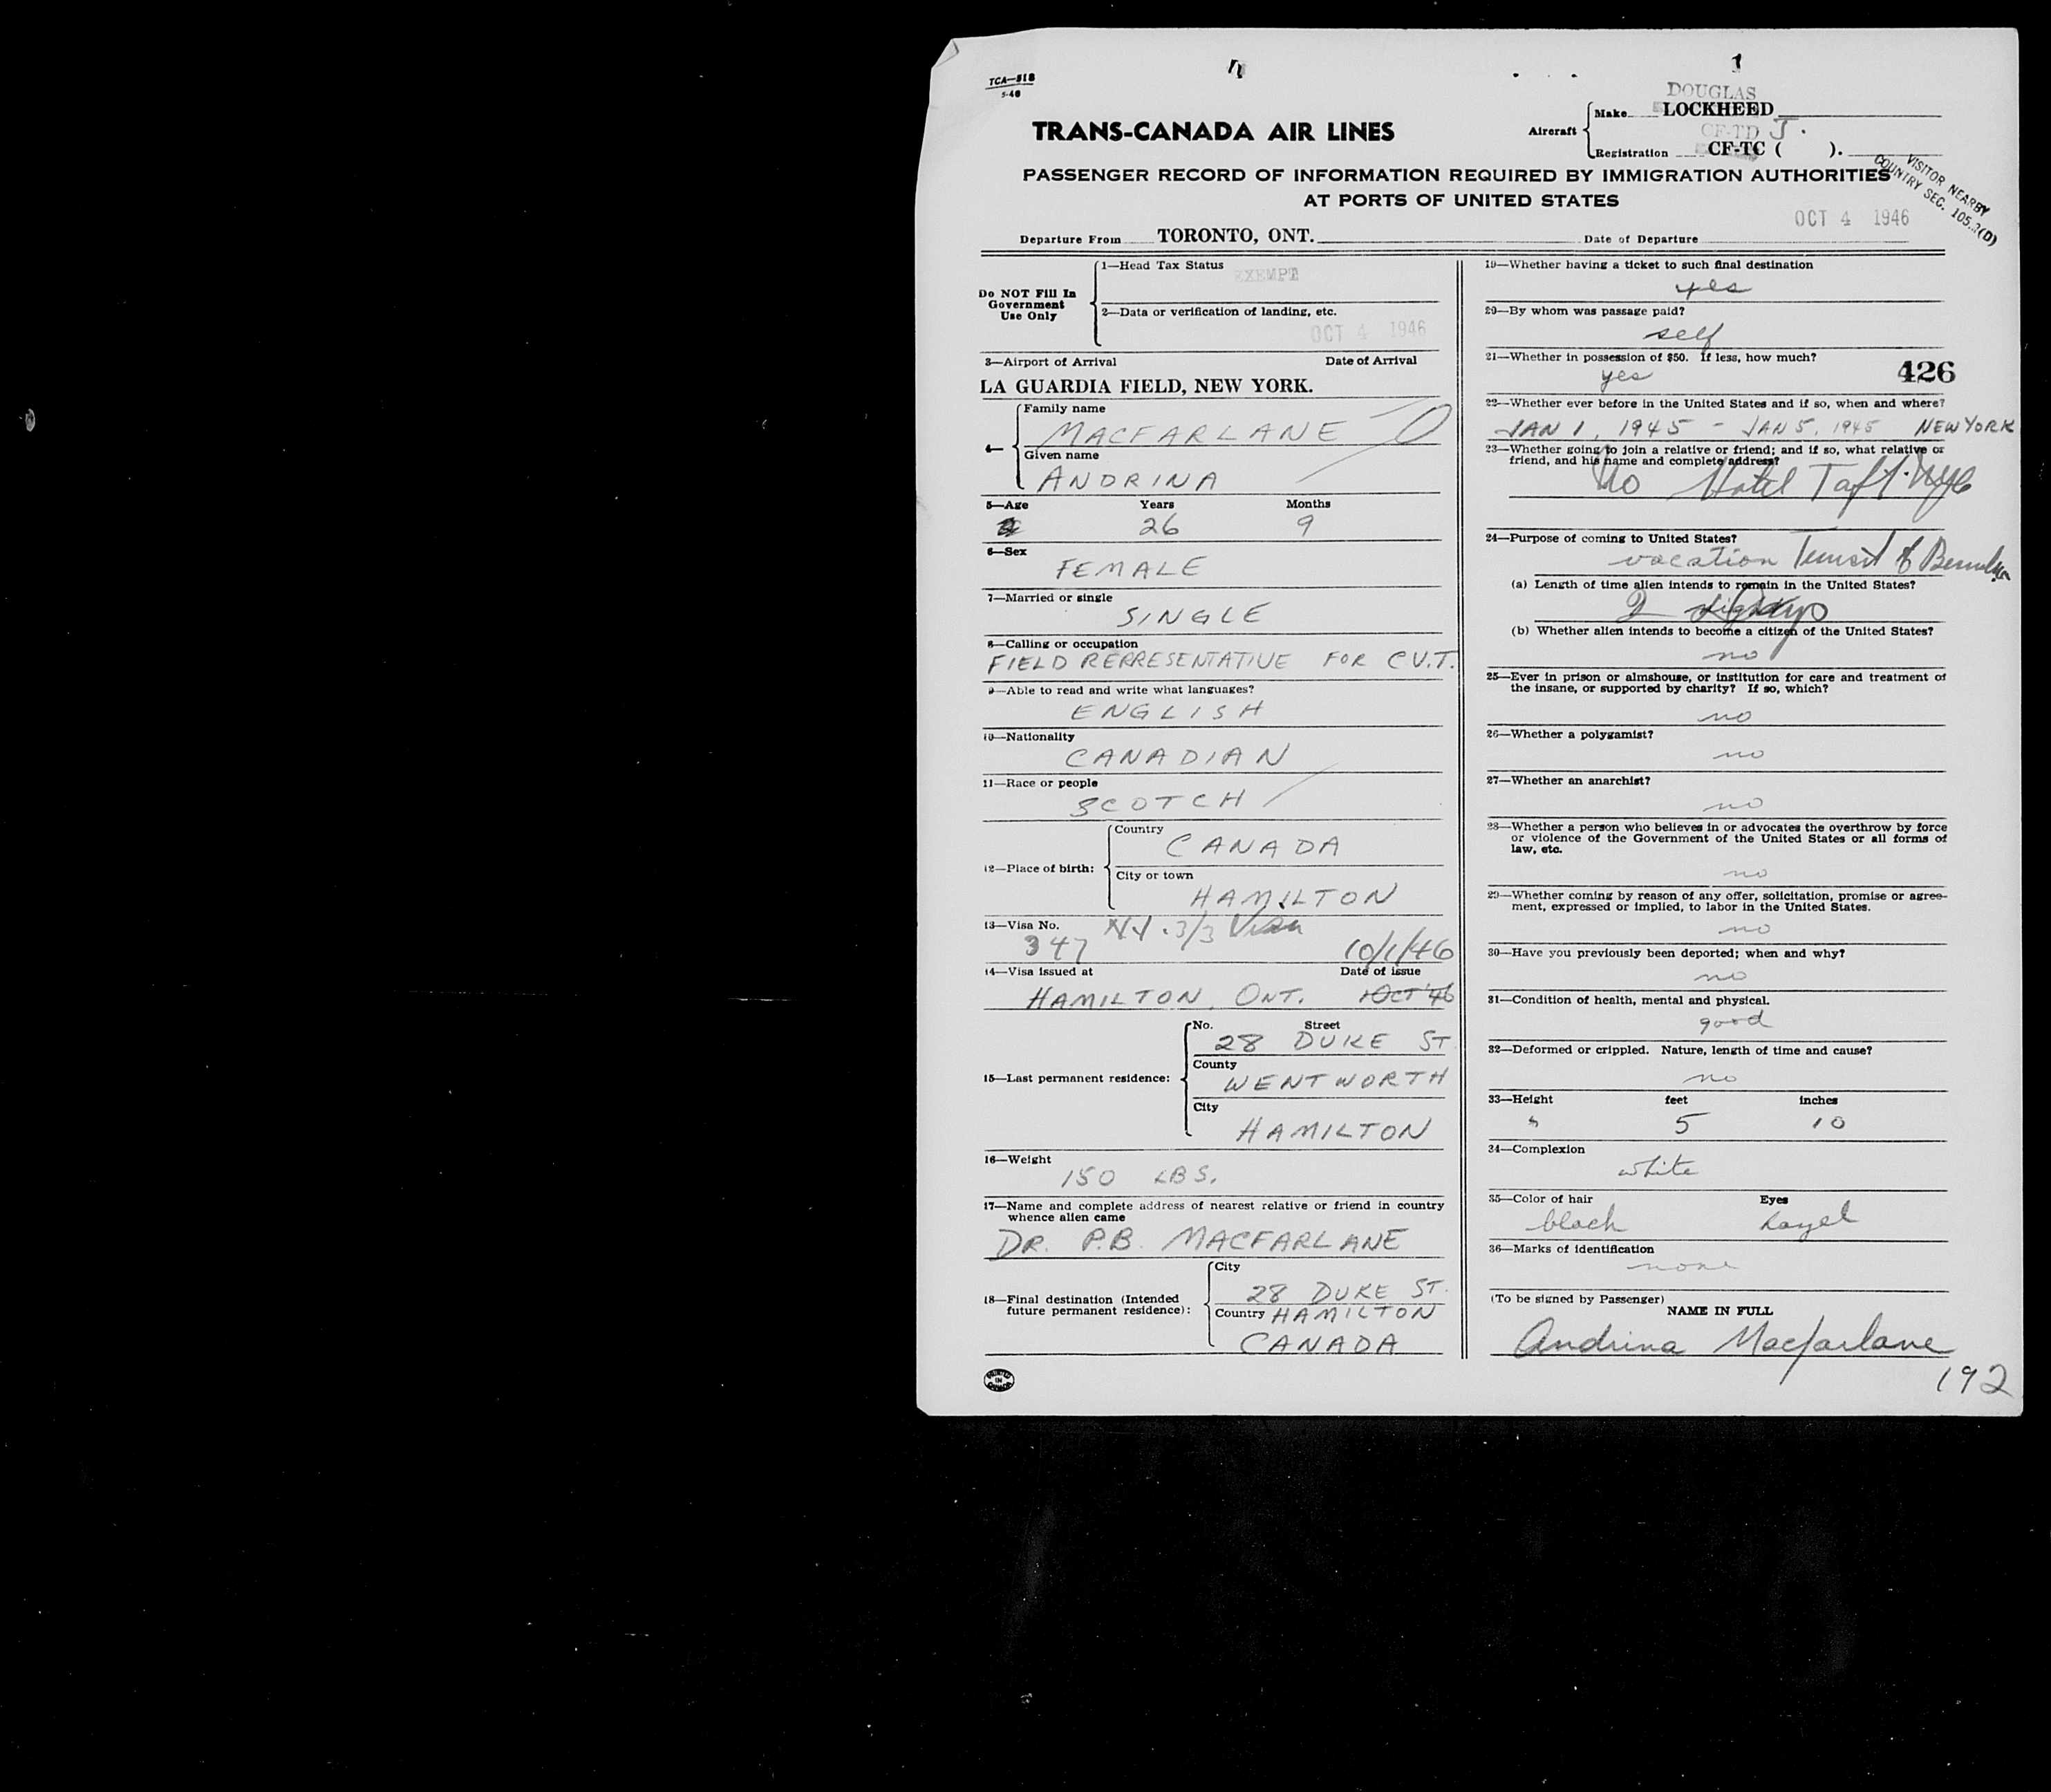 TCA—518
5-46
DOUGLAS
Make LOCKHEED
TRANS-CANADA AIR LINES
Aircraft
CF-TD J.
Registration CF-TC ( ).
PASSENGER RECORD OF INFORMATION REQUIRED BY IMMIGRATION AUTHORITIES
AT PORTS OF UNITED STATES
VISITOR NEARBY
COUNTRY SEC. 105.3(D)
OCT 4 1946
Departure From TORONTO, ONT. Date of Departure
Do NOT Fill In
Government
Use Only
1—Head Tax Status
EXEMPT
2—Data or verification of landing, etc.
OCT 4 1946
3—Airport of Arrival Date of Arrival
LA GUARDIA FIELD, NEW YORK.
4—
Family name
MACFARLANE
Given name
ANDRINA
5—Age Years Months
26 9
6—Sex
FEMALE
7—Married or single
SINGLE
8—Calling or occupation
FIELD REPRESENTATIVE FOR C.V.T.
9—Able to read and write what languages?
ENGLISH
10—Nationality
CANADIAN
11—Race or people
SCOTCH
12—Place of birth:
Country
CANADA
City or town
HAMILTON
13—Visa No. 3/3 Visa
347 10/1/46
14—Visa issued at Date of issue
HAMILTON, ONT. 1 OCT '46
15—Last permanent residence:
No. Street
28 DUKE ST
County
WENTWORTH
City
HAMILTON
16—Weight
150 LBS.
17—Name and complete address of nearest relative or friend in country
whence alien came
DR. P.B. MACFARLANE
18—Final destination (Intended
future permanent residence):
City
28 DUKE ST.
Country HAMILTON
CANADA
PRINTED
IN
CANADA
19—Whether having a ticket to such final destination
yes
20—By whom was passage paid?
self
21—Whether in possession of $50. If less, how much?
yes
426
22—Whether ever before in the United States and if so, when and where?
JAN 1, 1945 - JAN 5, 1945 NEW YORK
23—Whether going to join a relative or friend; and if so, what relative or
friend, and his name and complete address?
No Hotel Taft. Nyc
24—Purpose of coming to United States?
vacation Transit to Bermuda
(a) Length of time alien intends to remain in the United States?
2 days
(b) Whether alien intends to become a citizen of the United States?
no
25—Ever in prison or almshouse, or institution for care and treatment of
the insane, or supported by charity? If so, which?
no
26—Whether a polygamist?
no
27—Whether an anarchist?
no
28—Whether a person who believes in or advocates the overthrow by force
or violence of the Government of the United States or all forms of
law, etc.
no
29—Whether coming by reason of any offer, solicitation, promise or agree-
ment, expressed or implied, to labor in the United States.
no
30—Have you previously been deported; when and why?
no
31—Condition of health, mental and physical.
good
32—Deformed or crippled. Nature, length of time and cause?
no
33—Height feet inches
5 10
34—Complexion
white
35—Color of hair Eyes
black hazel
36—Marks of identification
none
(To be signed by Passenger)
NAME IN FULL
Andrina Macfarlane
192